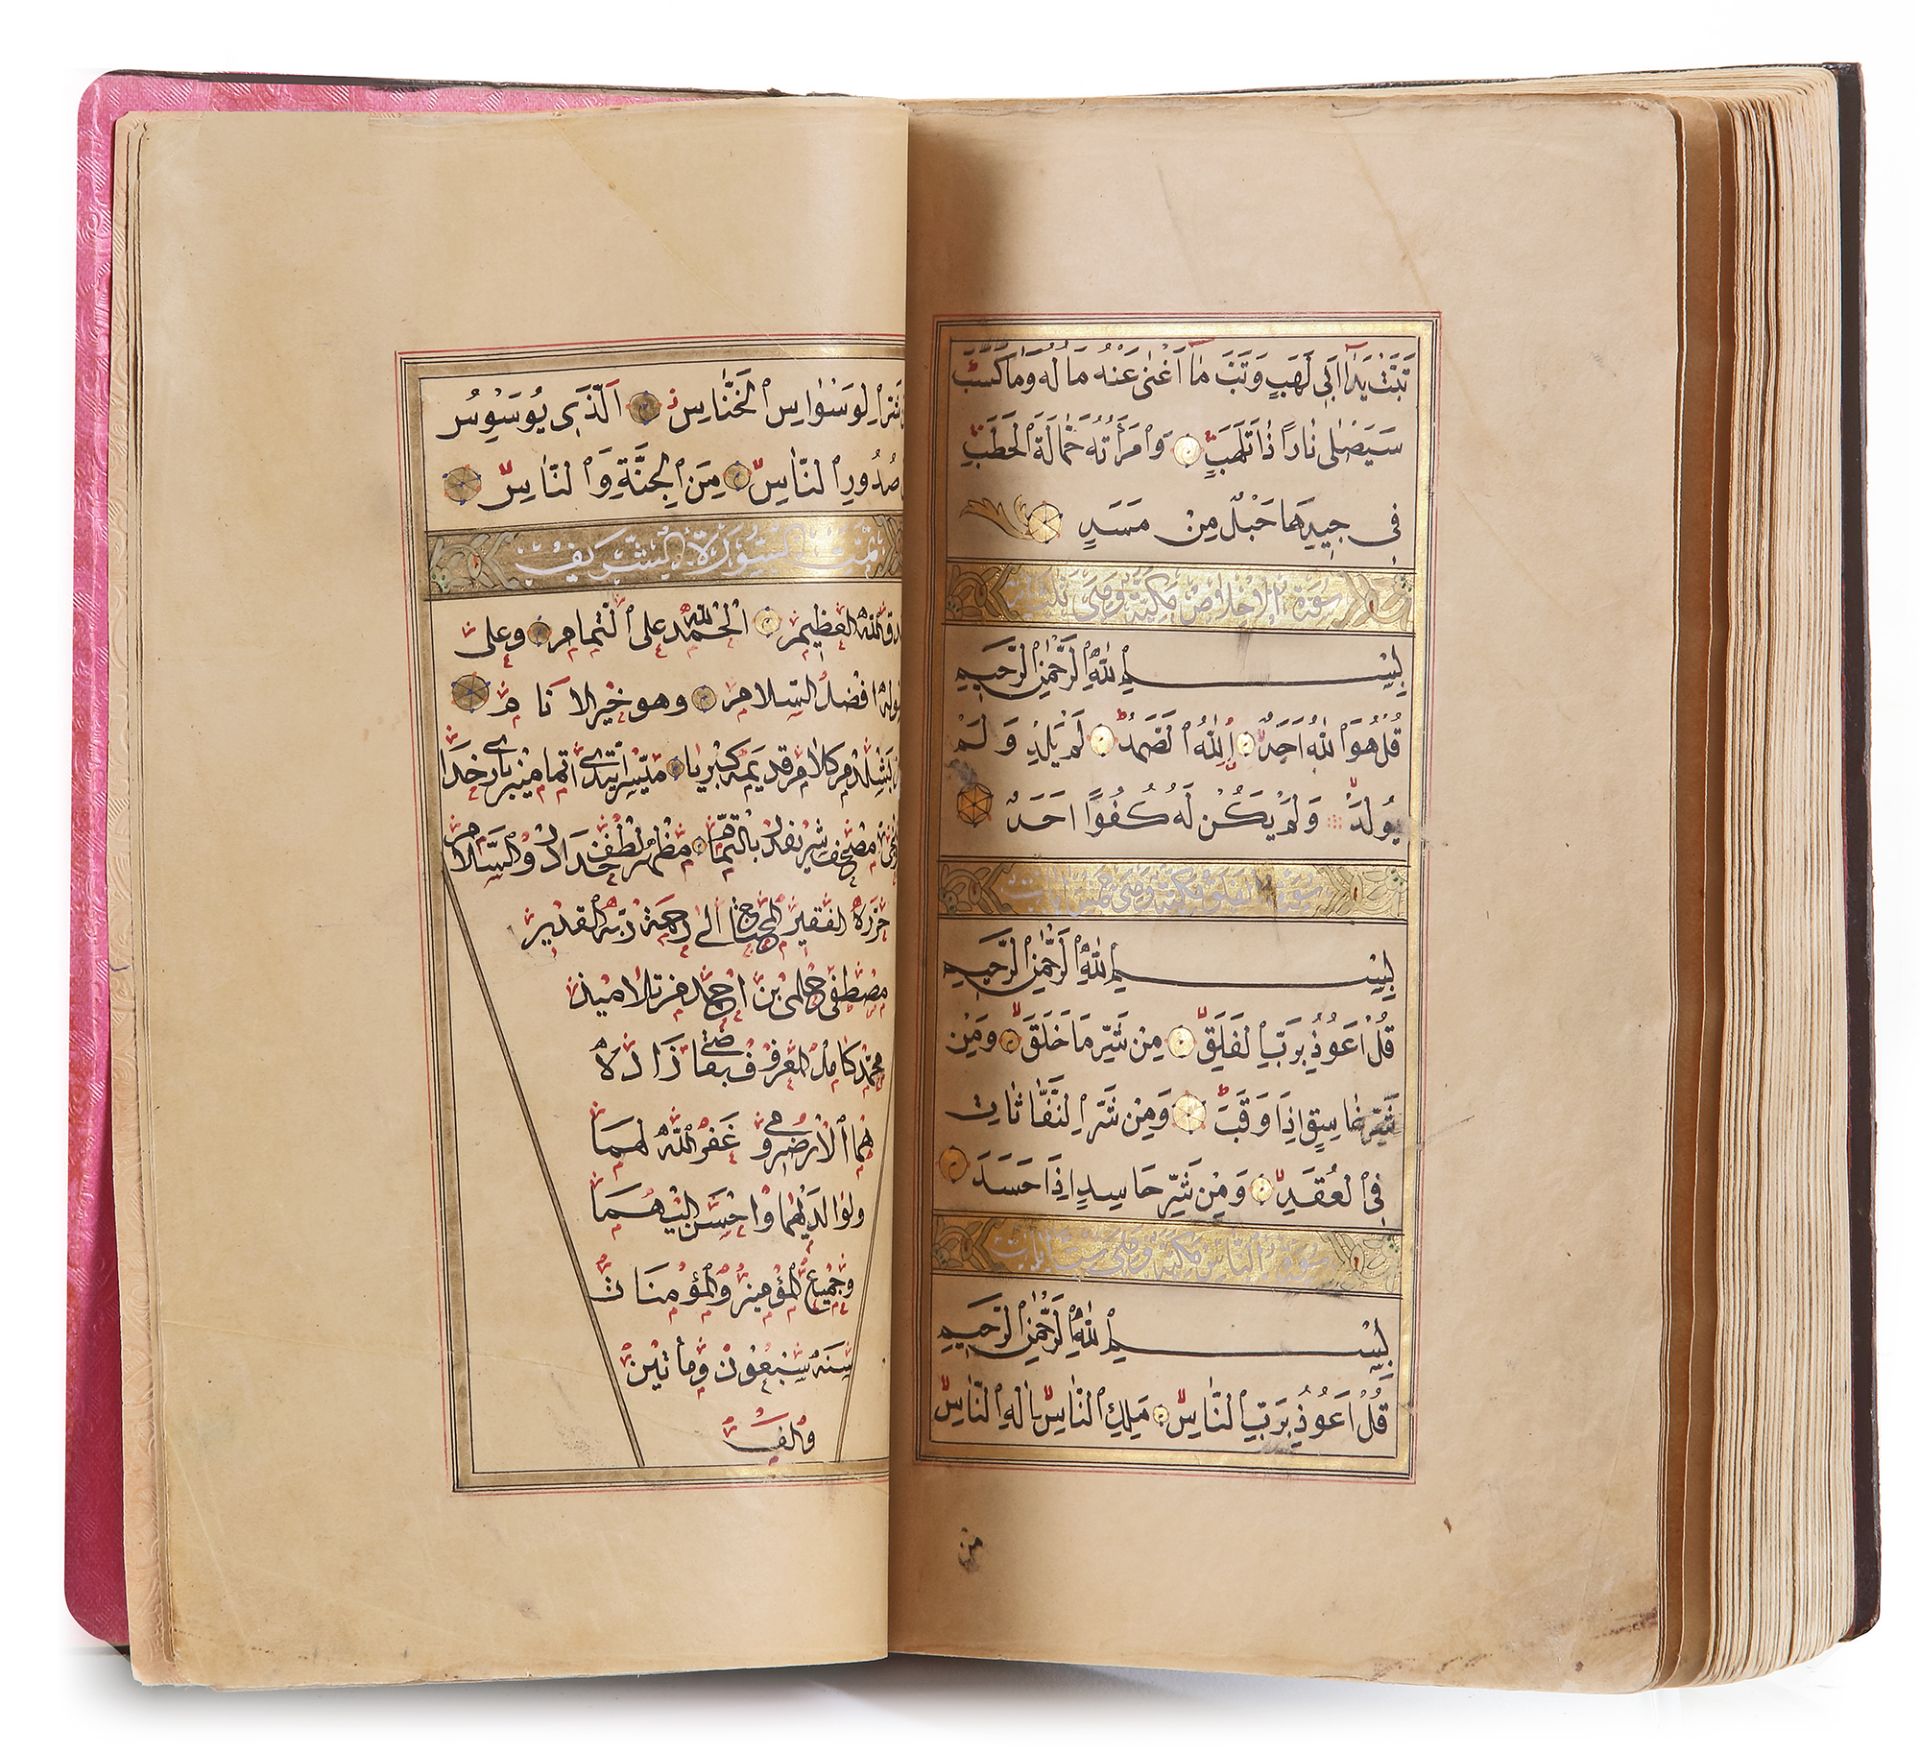 تَبَّتْ يَدَا أَبِي لَهَبٍ وَتَبَّ مَا أَغْنٰى عَنْهُ مَالُهُ وَمَا كَسَبَ
سَيَصْلٰى نَارًا ذَاتَ لَهَبٍ وَامْرَأَتُهُ حَمَّالَةَ الْحَطَبِ
فِي جِيدِهَا حَبْلٌ مِنْ مَسَدٍ
سورة الاخلاص مكية وهى
بِسْمِ اللّٰهِ الرَّحْمٰنِ الرَّحِيمِ
قُلْ هُوَ اللّٰهُ اَحَدٌ اَللّٰهُ الصَّمَدُ لَمْ يَلِدْ وَلَمْ
يُولَدْ وَلَمْ يَكُنْ لَهُ كُفُوًا اَحَدٌ
سورة الفلق مكية وهى خمس ايات
بِسْمِ اللّٰهِ الرَّحْمٰنِ الرَّحِيمِ
قُلْ اَعُوذُ بِرَبِّ الْفَلَقِ مِنْ شَرِّ مَا خَلَقَ وَمِنْ
شَرِّ غَاسِقٍ اِذَا وَقَبَ وَمِنْ شَرِّ النَّفَّاثَاتِ
فِي الْعُقَدِ وَمِنْ شَرِّ حَاسِدٍ اِذَا حَسَدَ
سورة الناس مكية وهى ست ايات
بِسْمِ اللّٰهِ الرَّحْمٰنِ الرَّحِيمِ
قُلْ اَعُوذُ بِرَبِّ النَّاسِ مَلِكِ النَّاسِ اِلٰهِ النَّاسِ
من
شَرِّ الْوَسْوَاسِ الْخَنَّاسِ اَلَّذِي يُوَسْوِسُ
صُدُورِ النَّاسِ مِنَ الْجِنَّةِ وَالنَّاسِ
تمت السورة الشريف
الله العظيم الحمد لله على التمام وعلى
افضل السلام وهو خير الانام
كلام قديمه كبريا ميسر ايتدى اتمامين بارى خدا
مصحف شريفدر بالتمام مظهر لطف خدادر والسلام
حرره الفقير المحتاج الى رحمة ربه القدير
مصطفى حلمى بن احمد من تلاميذ
محمد كامل المعروف
الارضرومى غفر الله لهما
ولوالديهما واحسن اليهما
وجميع المؤمنين والمؤمنات
سنه سبعون ومأتين
والف